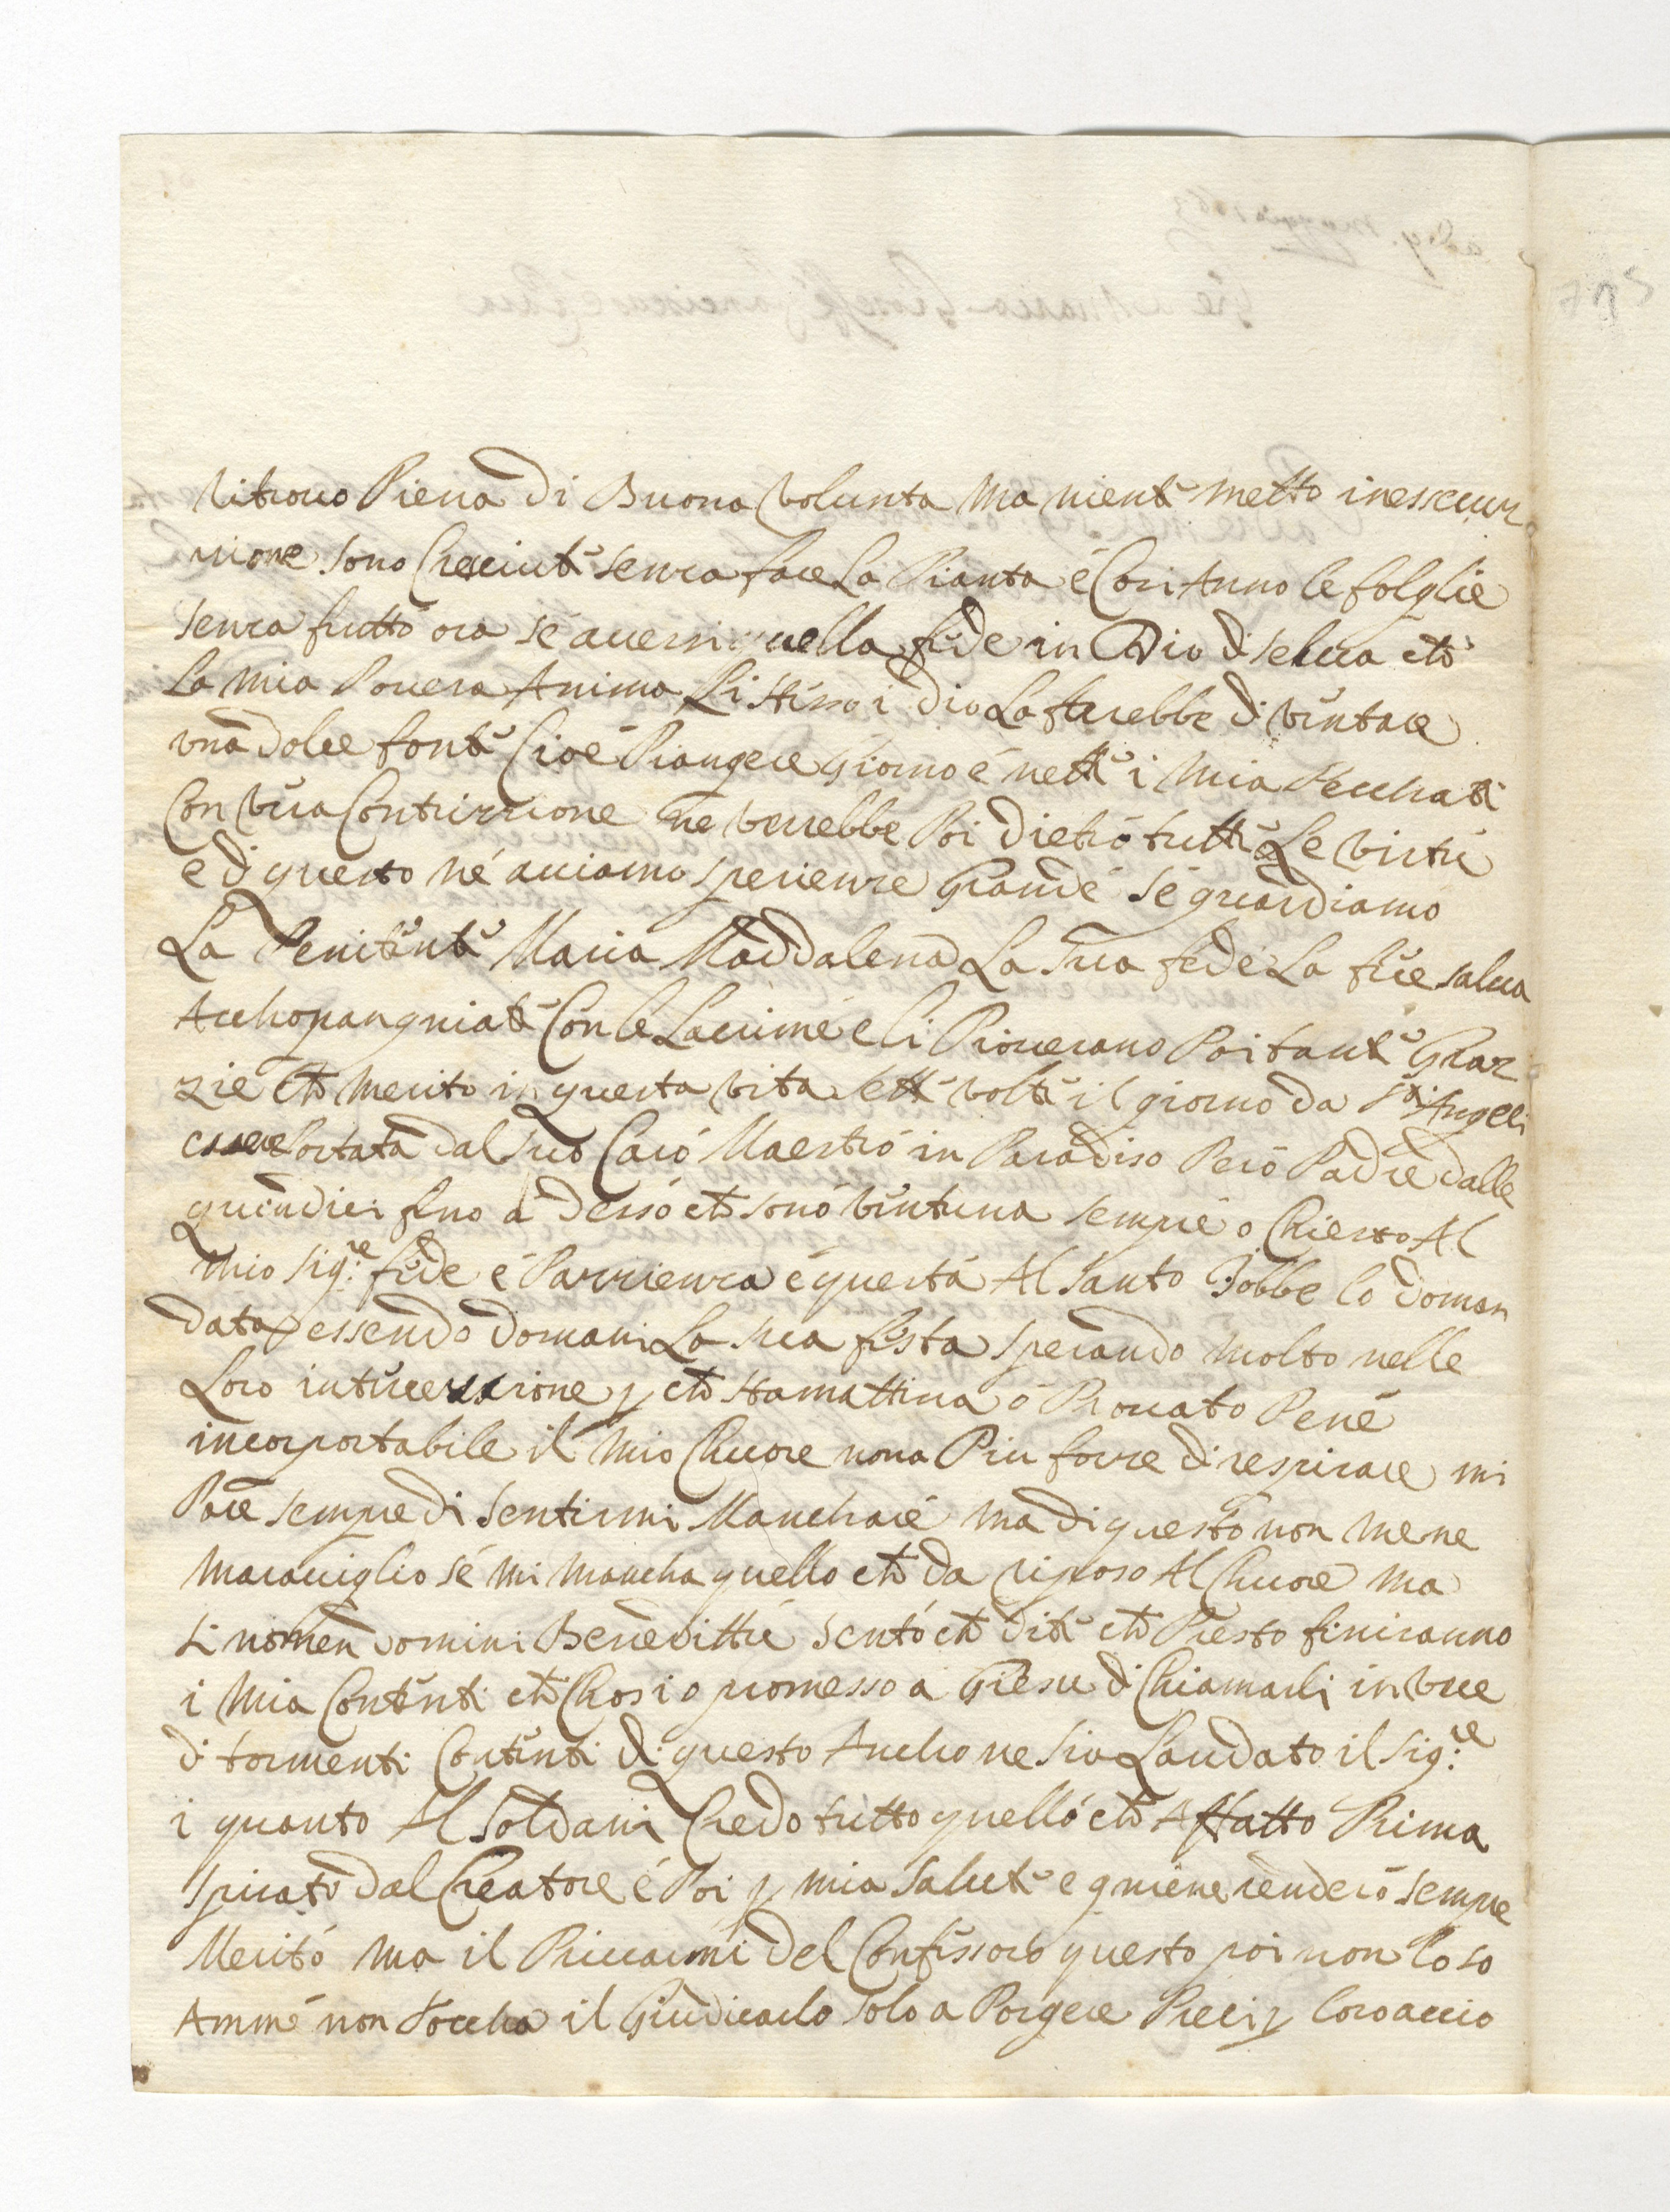 ritrovo Piena di Buona volunta ma niente metto inessecuz
zione sono Cresciute senza fare La Pianta é Cosi Anno le folglie
senza frutto ora sé avessi quella fede in Dio di selcia che
La mia Povera Anima Li Stesso i dio La farebbe di ventare
una dolce fonte Cioé Piangere Giorno é notte i mia Pecchati
Con vera Contrizzione ne verrebbe Poi dietro tutte Le virtu
e di questo né aviamo sperienze Grande sé guardiamo
La Penitente Maria Maddalena La sua fede La fece salva
Acchopangniate Con le Lacrime e li Proverano Poi tante Graz
zie che merito in questa vita sette volte il giorno da Sti Angeli
essere Portata dal suo Caro Maestro in Paradiso Pero Padre dalle
quindici fino a desso che sono ventuna sempre o Chiesto Al
mio Sig:re fede é Pazzienza é questa Al Santo Jobbe lo doman
data essendo domani La sua festa sperando molto nelle
Loro intercessione p che stamattina ó Provato Pené
incorportabile il mio Chuore nona Piu forze di respirare mi
Pare sempre di sentirmi Manchare ma di questo non me ne
maraviglio sé mi mancha quello che da riposo Al Chuore ma
si nomen domini Beneditte sento che dite che Presto finiranno
i mia Contenti che Chosi o promesso a Giesu di Chiamarli in vece
di tormenti Contenti di questo Ancho ne sia Laudato il Sig:re
i quanto Al Soldani Credo tutto quello che Affatto Prima
spirato dal Creatore é Poi p mia salute e gniene renderó sempre
Merito ma il Priccarmi del Confessoro questo poi non lo so
Ammé non Toccha il Giudicarlo solo a Porgere Preci p loro accio